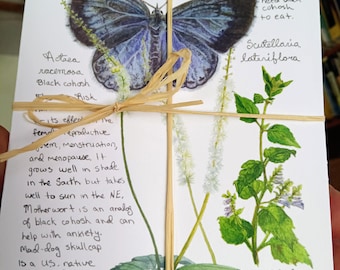 need black
cohosh
to eat.
Scutellaria
lateriflora
Actaea
racemosa
Black cohosh
Risk
its effect
female reproductive
system, menstruation,
and menopause. It
grows well in shade
in the South but takes
well to sun in the NE.
Motherwort is an analog
of black cohosh and can
help with anxiety.
Mad-dog skullcap
is a U.S. native